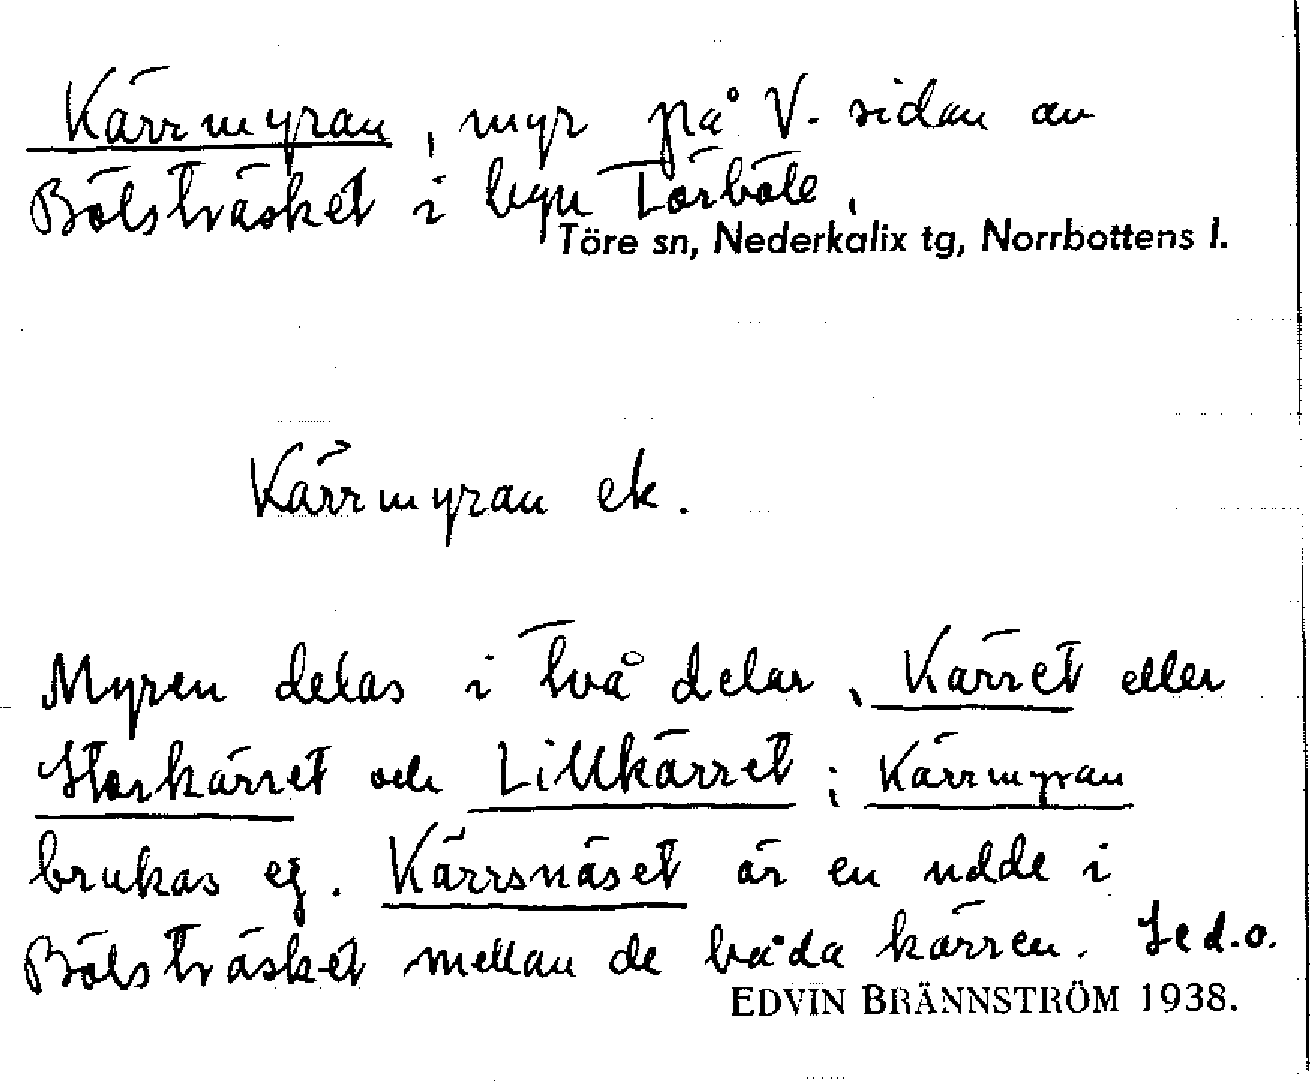 Kärrmyran, myr på V. sidan av
Bölsträsket i byn Törböle.
Töre sn, Nederkalix tg, Norrbottens l.
Kärrmyran ek.
Myren delas i två delar, Kärret eller
Storkärret och Lillkärret; Kärrmyran
brukas ej. Kärrsnäset är en udde i
Bölsträsket mellan de båda kärren. Se d.o.
EDVIN BRÄNNSTRÖM 1938.